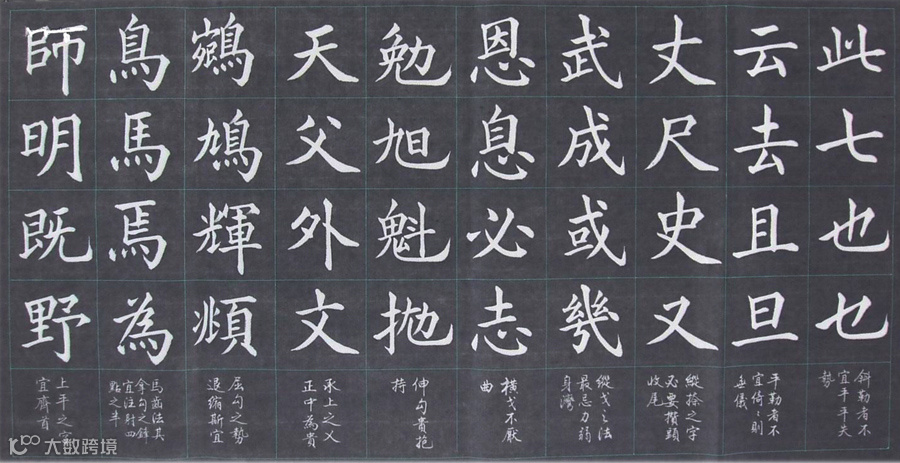 此七也乜
斜勒者不
宜平平失
勢
云去且旦
平勒者不
宜倚〻則
無儀
丈尺史又
縱捺之字
必要攢頭
收尾
武成或幾
縱戈之法
最忌力弱
身灣
恩息必志
橫戈不厭
曲
勉旭魁拋
伸勾貴抱
持
天父外文
承上之乂
正中為貴
鵷鳩輝頫
屈勾之勢
退縮斯宜
鳥馬焉為
馬齒法其
拿勾之鋒
宜注射四
點之半
師明既野
上平之字
宜齊首
大数跨境